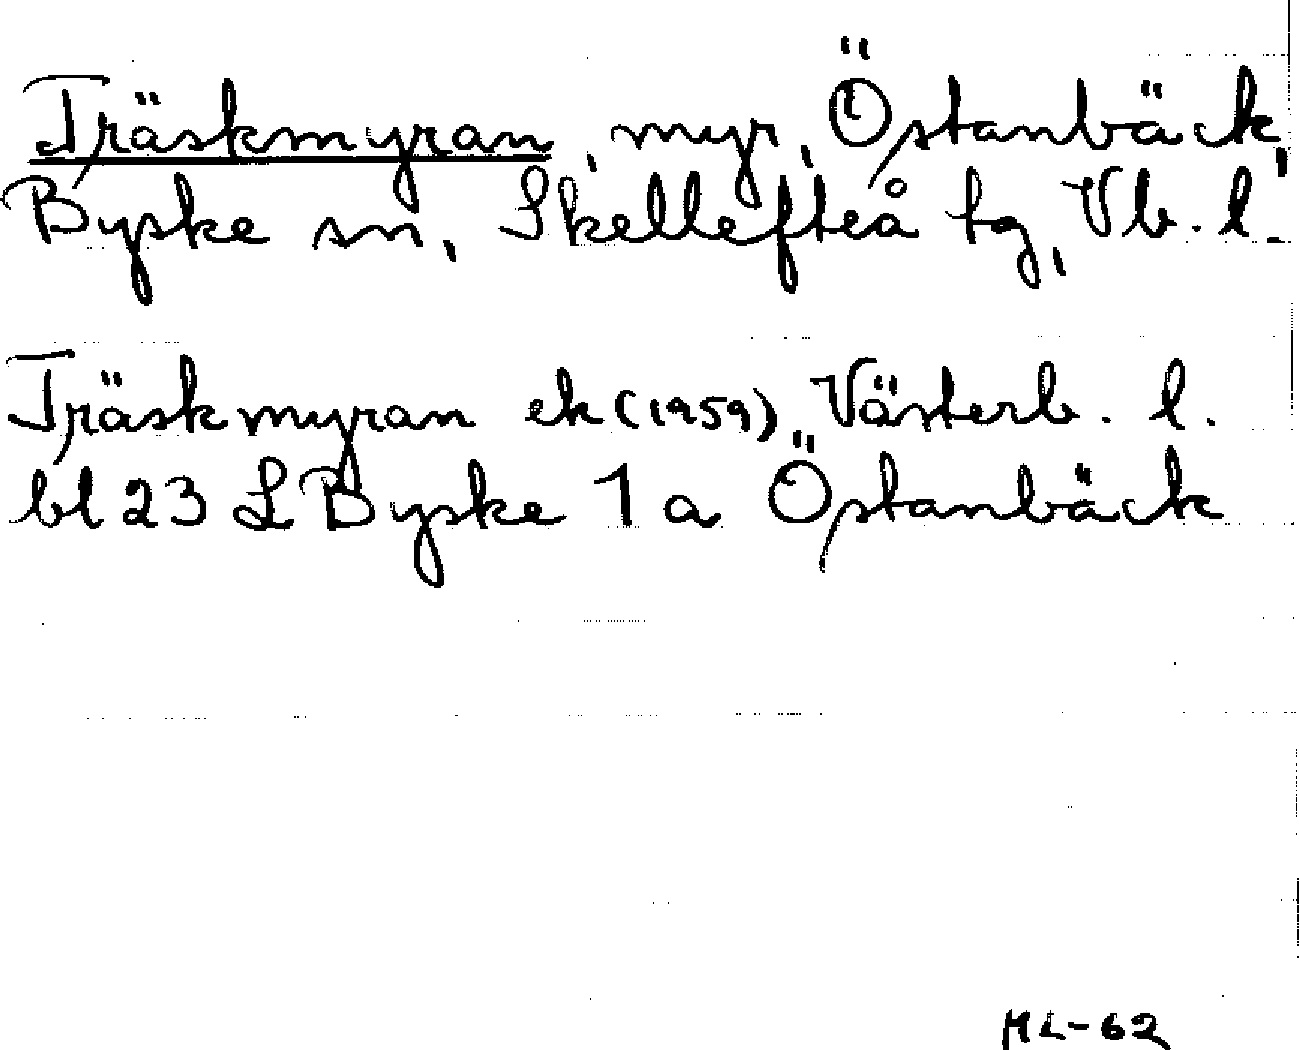 Träskmyran, myr, Östanbäck,
Byske sn, Skellefteå tg, Vb. l.
Träskmyran ek (1959) Västerb. l.
bl 23 L Byske 1 a Östanbäck
ML-62